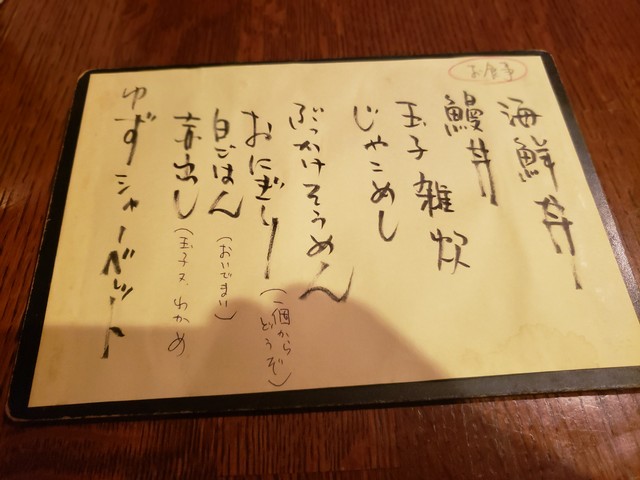 お食事
海鮮丼
鰻丼
玉子雑炊
じゃこめし
ぶっかけそうめん
おにぎりー
(一個からどうぞ)
白ごはん
(おいでまい)
赤出し
(玉子又わかめ)
ゆずシャーベット